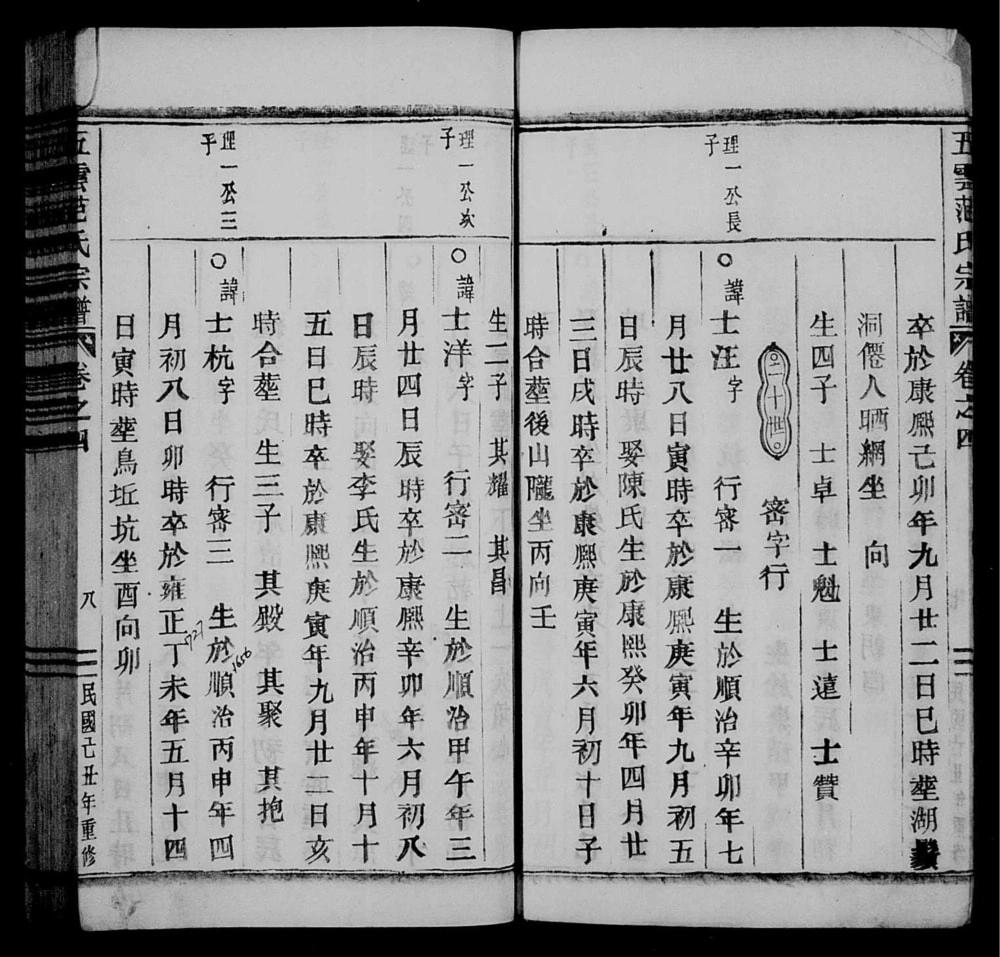 五雲范氏宗譜
卷之四
卒於康熈己卯年九月廿二日巳時塟湖
洞僊人晒網坐 向
生四子 士卓 士魁 士遠 士贊
二十世
密字行
理一公長子
諱士汪字 行密一 生於順治辛卯年七
月廿八日寅時卒於康熈庚寅年九月初五
日辰時 娶陳氏生於康熙癸卯年四月廿
三日戌時卒於康熈庚寅年六月初十日子
時合塟後山隴坐丙向壬
生二子 其耀 其昌
理一公次子
諱士洋字 行密二 生於順治甲午年三
月廿四日辰時卒於康熈辛卯年六月初八
日辰時 娶李氏生於順治丙申年十月十
五日巳時卒於康熙庚寅年九月廿二日亥
時合塟 生三子 其殿 其聚 其抱
理一公三子
諱士杭字 行密三 生於順治丙申年四
1656
月初八日卯時卒於雍正丁未年五月十四
1727
日寅時塟鳥坵坑坐酉向卯
五雲范氏宗譜
卷之四
八
民國己丑年重修